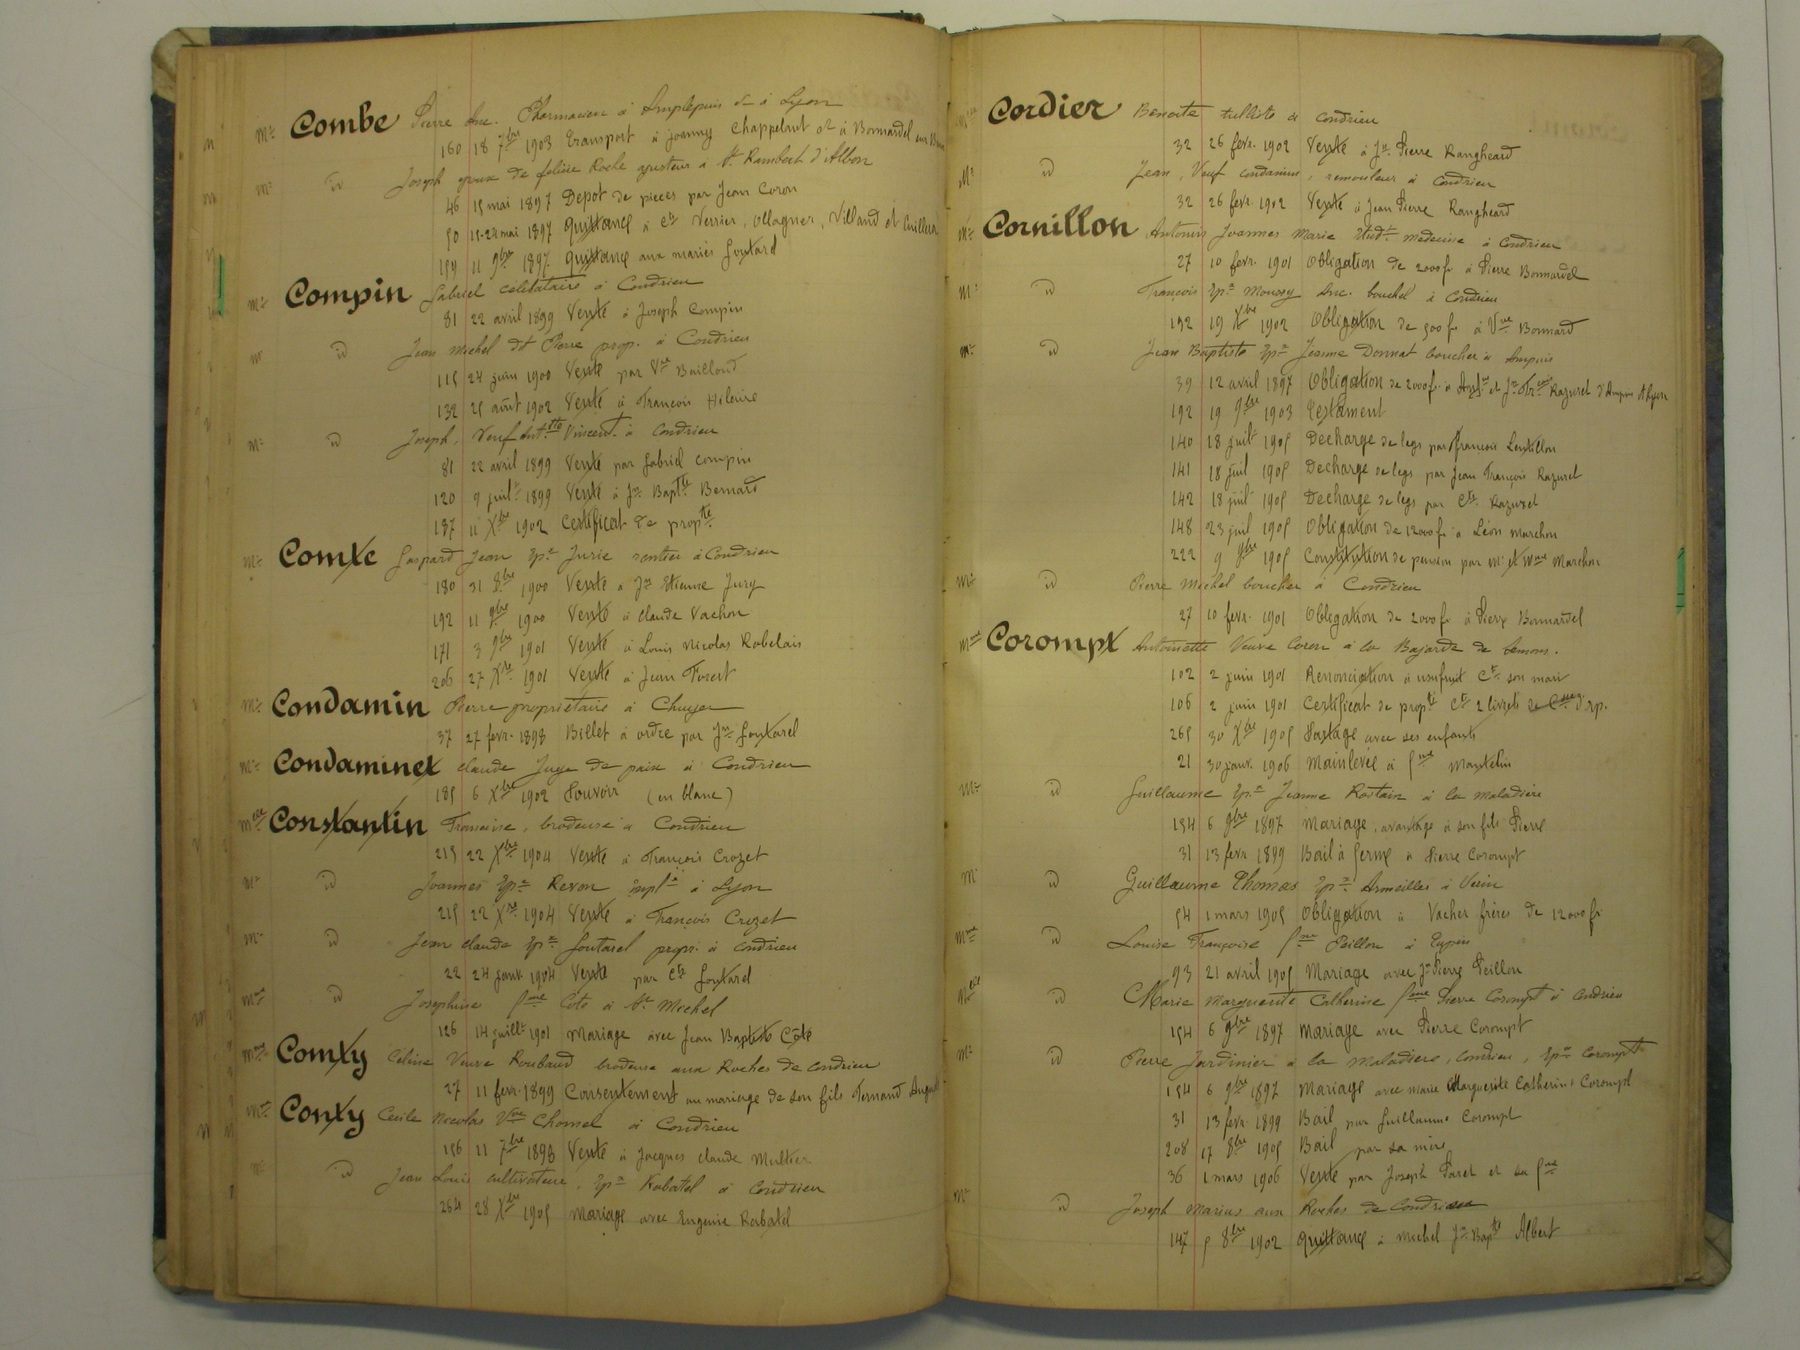 Mr Combe Pierre Pharmacien à Amplepuis à Lyon
160 18 7bre 1903 Transport à Joanny Chappelant et à Bonnardel
Mr id Joseph époux de félicie Roche ajusteur à St Rambert d'Albon
46 15 mai 1897 Depot de pieces par Jean Coron
50 15-24 mai 1897 quittance à Cts Verrier, Ollagner, Villand et Cuilleron
159 11 9bre 1897 quittance aux mariés Goutard
Mr Compin Gabriel celibataire à Condrieu
81 22 avril 1899 Vente à Joseph Compin
Mr id Jean Michel dt Pierre prop. à Condrieu
115 24 juin 1900 Vente par Vve Bailloud
132 25 août 1902 Vente à François Hilaire
Mr id Joseph, Veuf Anttte Vincent à Condrieu
81 22 avril 1899 Vente par Gabriel Compin
120 9 juilt 1899 Vente à Jn Baptte Bernard
187 11 Xbre 1902 Certificat de propté
Mr Comte Gaspard Jean Epx Jurie rentier à Condrieu
180 31 8bre 1900 Vente à Jn Etienne Jury
192 11 9bre 1900 Vente à Claude Vachon
171 3 9bre 1901 Vente à Louis Nicolas Rabelais
206 27 Xbre 1901 Vente à Jean Forest
Mr Condamin Pierre propriétaire à Chuyer
37 27 fevr. 1898 Billet à ordre par Jn Goutarel
Mr Condaminet Claude Juge de paix à Condrieu
185 6 Xbre 1902 Pouvoir (en blanc)
Melle Constantin Françoise, brodeuse à Condrieu
215 22 Xbre 1904 Vente à François Crozet
Mr id Joannes Epx Revon à Lyon
215 22 Xbre 1904 Vente à François Crozet
Mr id Jean Claude Epx Goutarel propr. à Condrieu
22 24 janv 1904 Vente par Cts Goutarel
Mme id Josephine fme Côte à St Michel
126 14 juillt 1901 Mariage avec Jean Baptiste Côte
Mme Comty Celine Veuve Roubaud brodeuse aux Roches de Condrieu
27 11 fevr. 1899 Consentement au mariage de son fils Fernand
Mme Conty Cecile Nicolas Vve Chomel à Condrieu
156 11 7bre 1898 Vente à Jacques Claude Multier
Mr id Jean Louis cultivateur, Epx Rabatel à Condrieu
264 28 Xbre 1905 Mariage avec Eugenie Rabatel
Cordier Benoite tulliste à Condrieu
32 26 fevr. 1902 Vente à Jn Pierre Rangheard
Mr id Jean, Veuf Condamin, remouleur à Condrieu
32 26 fevr. 1902 Vente à Jean Pierre Rangheard
Mr Cornillon Antonin Joannes Marie Etudt medecine à Condrieu
27 10 fevr. 1901 Obligation de 2000f à Pierre Bonnardel
Mr id François Epx Moussy boucher à Condrieu
192 19 Xbre 1902 Obligation de 500 f à Vve Bonnard
Mr id Jean Baptiste Epx Jeanne Donnat boucher à Ampuis
39 12 avril 1897 Obligation de 2000 f. à et Jn Fr. Razurel d'Ampuis
192 19 9bre 1903 Testament
140 18 juilt 1905 Decharge de legs par François Lentillon
141 18 juil 1905 Decharge de legs par Jean François Razurel
142 18 juil 1905 Decharge de legs par Cts Razurel
148 23 juil 1905 Obligation de 12000 f à Léon Marchon
222 9 9bre 1905 Constitution de pension par Mr et Mme Marchon
Mr id Pierre Michel boucher à Condrieu
27 10 fevr. 1901 Obligation de 2000 f à Pierre Bonnardel
Mme Corompt Antoinette Veuve Coron à la Bajarde de Semons.
102 2 juin 1901 Renonciation à usufruit Ct son mari
106 2 juin 1901 Certificat de propté Ct 2 livrets d'ép.
265 30 Xbre 1905 Partage avec ses enfants
21 30 janv. 1906 Mainlevée à fme Mantelin
Mr id Guillaume Epx Jeanne Rostain à la Maladière
154 6 9bre 1897 Mariage, avantage à son fils Pierre
31 13 fevr 1899 Bail à ferme à Pierre Corompt
Mr id Guillaume Thomas Epx Armeilles à Verin
54 1 mars 1905 Obligation à Vacher frères de 12000 f
Mme id Louise Françoise fme Peillon à Eypin
93 21 avril 1905 Mariage avec Jn Pierre Peillon
Melle id Marie Marguerite Catherine fme Pierre Corompt à Condrieu
154 6 9bre 1897 Mariage avec Pierre Corompt
Mr id Pierre Jardinier à la Maladiere, Condrieu, Epx Corompt
154 6 9bre 1897 Mariage avec Marie Marguerite Catherine Corompt
31 13 fevr. 1899 Bail par Guillaume Corompt
208 17 8bre 1905 Bail par sa mère
36 1 mars 1906 Vente par Joseph Paret et sa fme
Mr id Joseph Marius aux Roches de Condrieu
147 5 8bre 1902 quittance à Michel Jn Bapte Albert